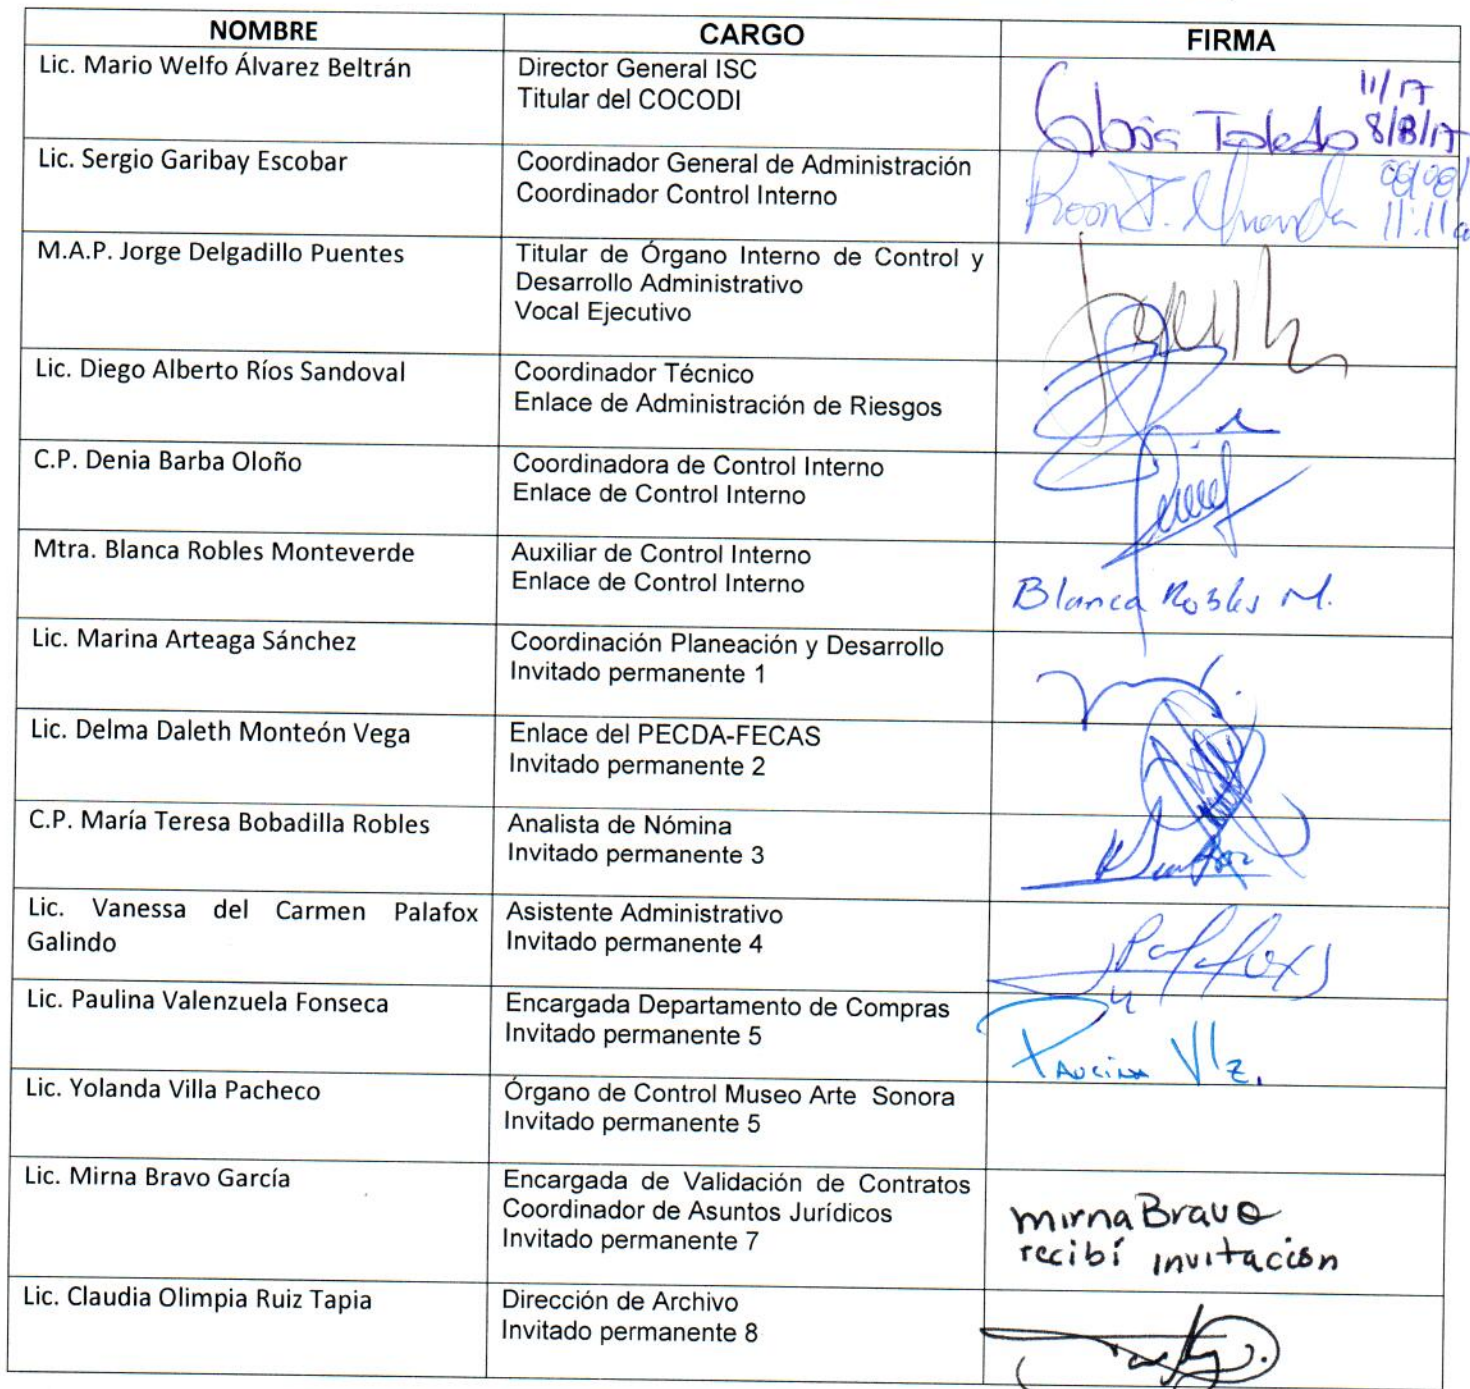 NOMBRE CARGO FIRMA
Lic. Mario Welfo Álvarez Beltrán
Director General ISC
Titular del COCODI
11/17
Toledo 8/8/17
Lic. Sergio Garibay Escobar
Coordinador General de Administración
Coordinador Control Interno
M.A.P. Jorge Delgadillo Puentes
Titular de Órgano Interno de Control y
Desarrollo Administrativo
Vocal Ejecutivo
Lic. Diego Alberto Ríos Sandoval
Coordinador Técnico
Enlace de Administración de Riesgos
C.P. Denia Barba Oloño
Coordinadora de Control Interno
Enlace de Control Interno
Mtra. Blanca Robles Monteverde
Auxiliar de Control Interno
Enlace de Control Interno
Blanca Robles M.
Lic. Marina Arteaga Sánchez
Coordinación Planeación y Desarrollo
Invitado permanente 1
Lic. Delma Daleth Monteón Vega
Enlace del PECDA-FECAS
Invitado permanente 2
C.P. María Teresa Bobadilla Robles
Analista de Nómina
Invitado permanente 3
Lic. Vanessa del Carmen Palafox
Galindo
Asistente Administrativo
Invitado permanente 4
Palafox
Lic. Paulina Valenzuela Fonseca
Encargada Departamento de Compras
Invitado permanente 5
Paulina Vlz.
Lic. Yolanda Villa Pacheco
Órgano de Control Museo Arte Sonora
Invitado permanente 5
Lic. Mirna Bravo García
Encargada de Validación de Contratos
Coordinador de Asuntos Jurídicos
Invitado permanente 7
mirna Bravo
recibí invitacion
Lic. Claudia Olimpia Ruiz Tapia
Dirección de Archivo
Invitado permanente 8